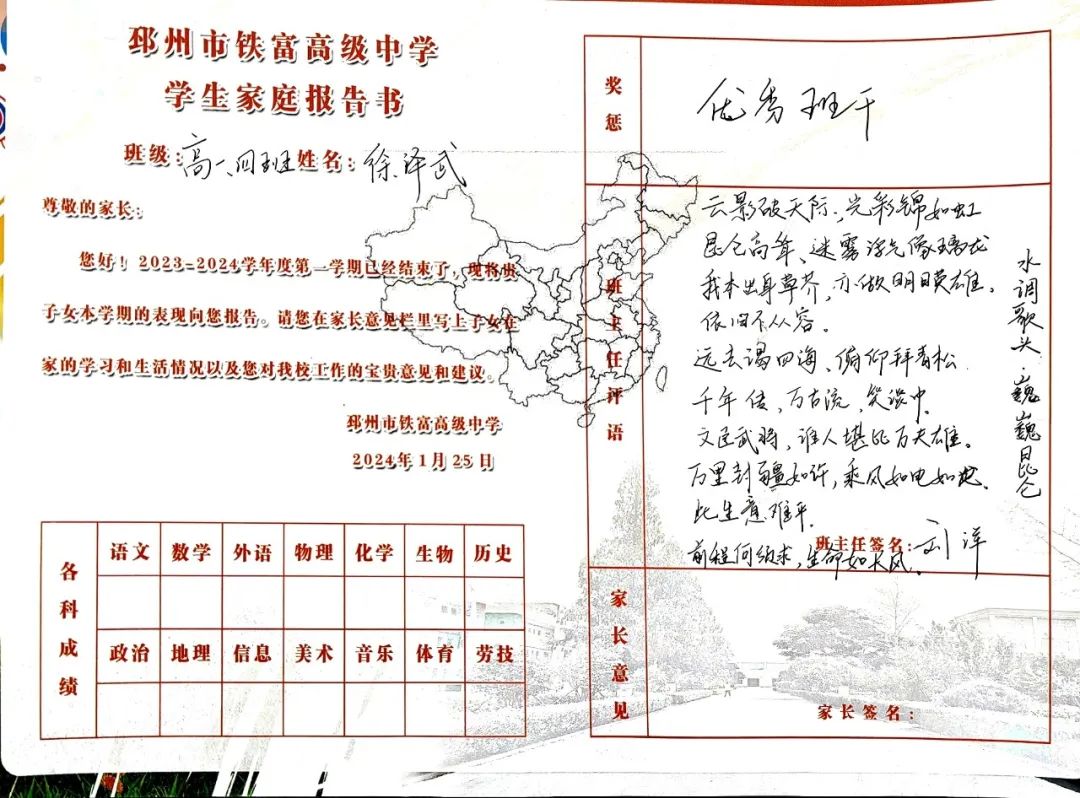 邳州市铁富高级中学
学生家庭报告书
班级:高一、四班姓名:徐泽武
尊敬的家长:
您好!2023-2024学年度第一学期已经结束了,现将贵
子女本学期的表现向您报告。请您在家长意见栏里写上子女在
家的学习和生活情况以及您对我校工作的宝贵意见和建议。
邳州市铁富高级中学
2024年1月25日
各科成绩
语文 数学 外语 物理 化学 生物 历史
政治 地理 信息 美术 音乐 体育 劳技
奖惩
优秀班干
班主任评语
水调歌头·巍巍昆仑
云影破天际,光彩锦如虹
昆仑高耸,迷雾浮光像璃龙
我本出身草芥,亦做明日英雄,
依旧不从容。
远去谒四海,俯仰拜青松
千年传,万古流,笑谈中
文臣武将,谁人堪比万夫雄。
万里封疆如许,乘风如电如
此生意难平
前程何须求,生命如长风。
班主任签名:刘洋
家长意见
家长签名: